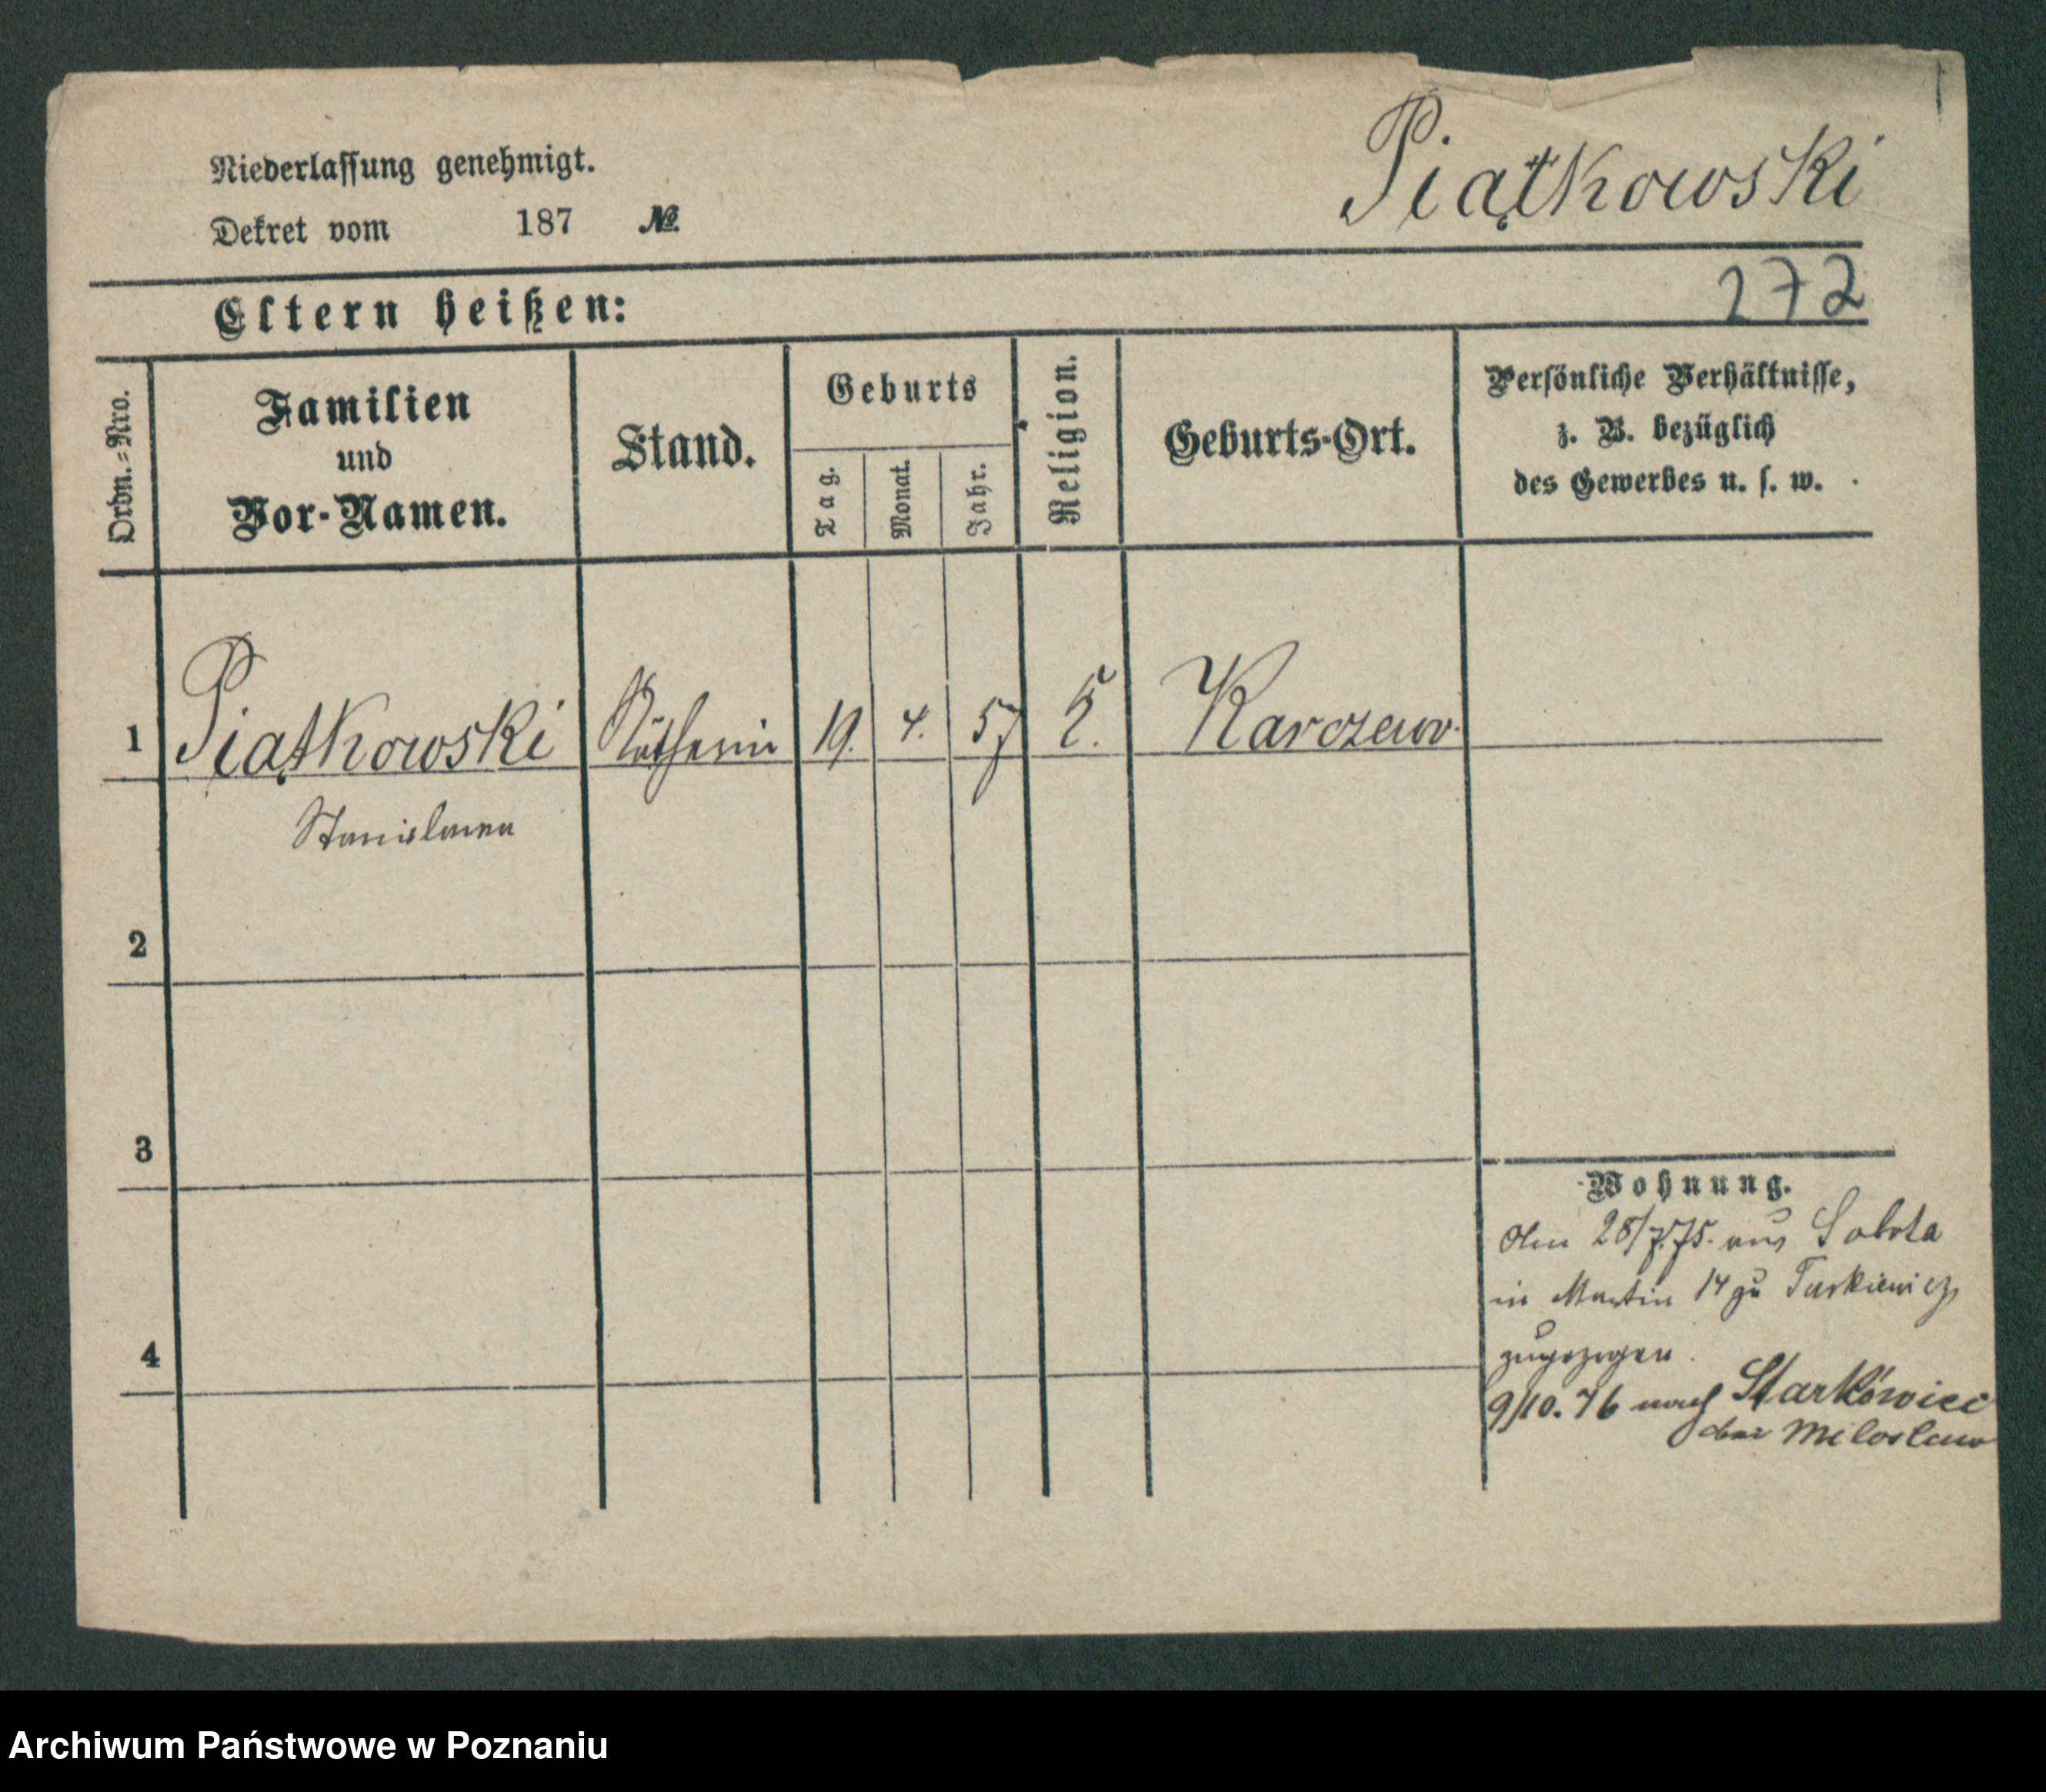 Piątkowski
Niederlassung genehmigt.
Dekret vom 187 №
272
Eltern heißen:
Ordn.-Nro.
Familien
und
Vor-Namen.
Stand.
Geburts
Tag.
Monat.
Jahr.
Religion.
Geburts-Ort.
Persönliche Verhältnisse,
z. B. bezüglich
des Gewerbes u. s. w.
1 Piątkowski 19. 4. 57 K. Karczew.
Stanislawa
2
3
4
Wohnung.
Am 28/7.75. aus Sobota
in Martin 14 zu
zugezogen.
9/10.76 nach Starkówiec
bei Miloslaw
Archiwum Państwowe w Poznaniu